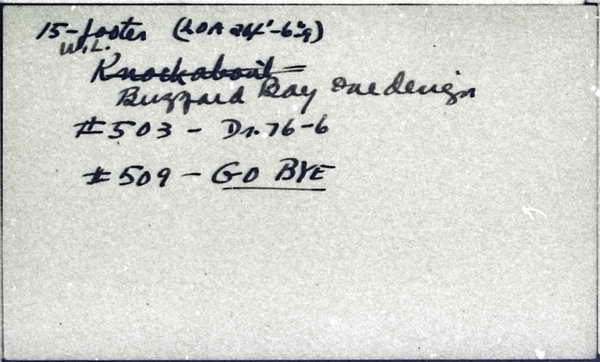 15-footer (LOA 24'-6")
W.L.
Knockabout
Buzzard Bay one design
#503 - Dr. 76-6
#509 - GO BYE